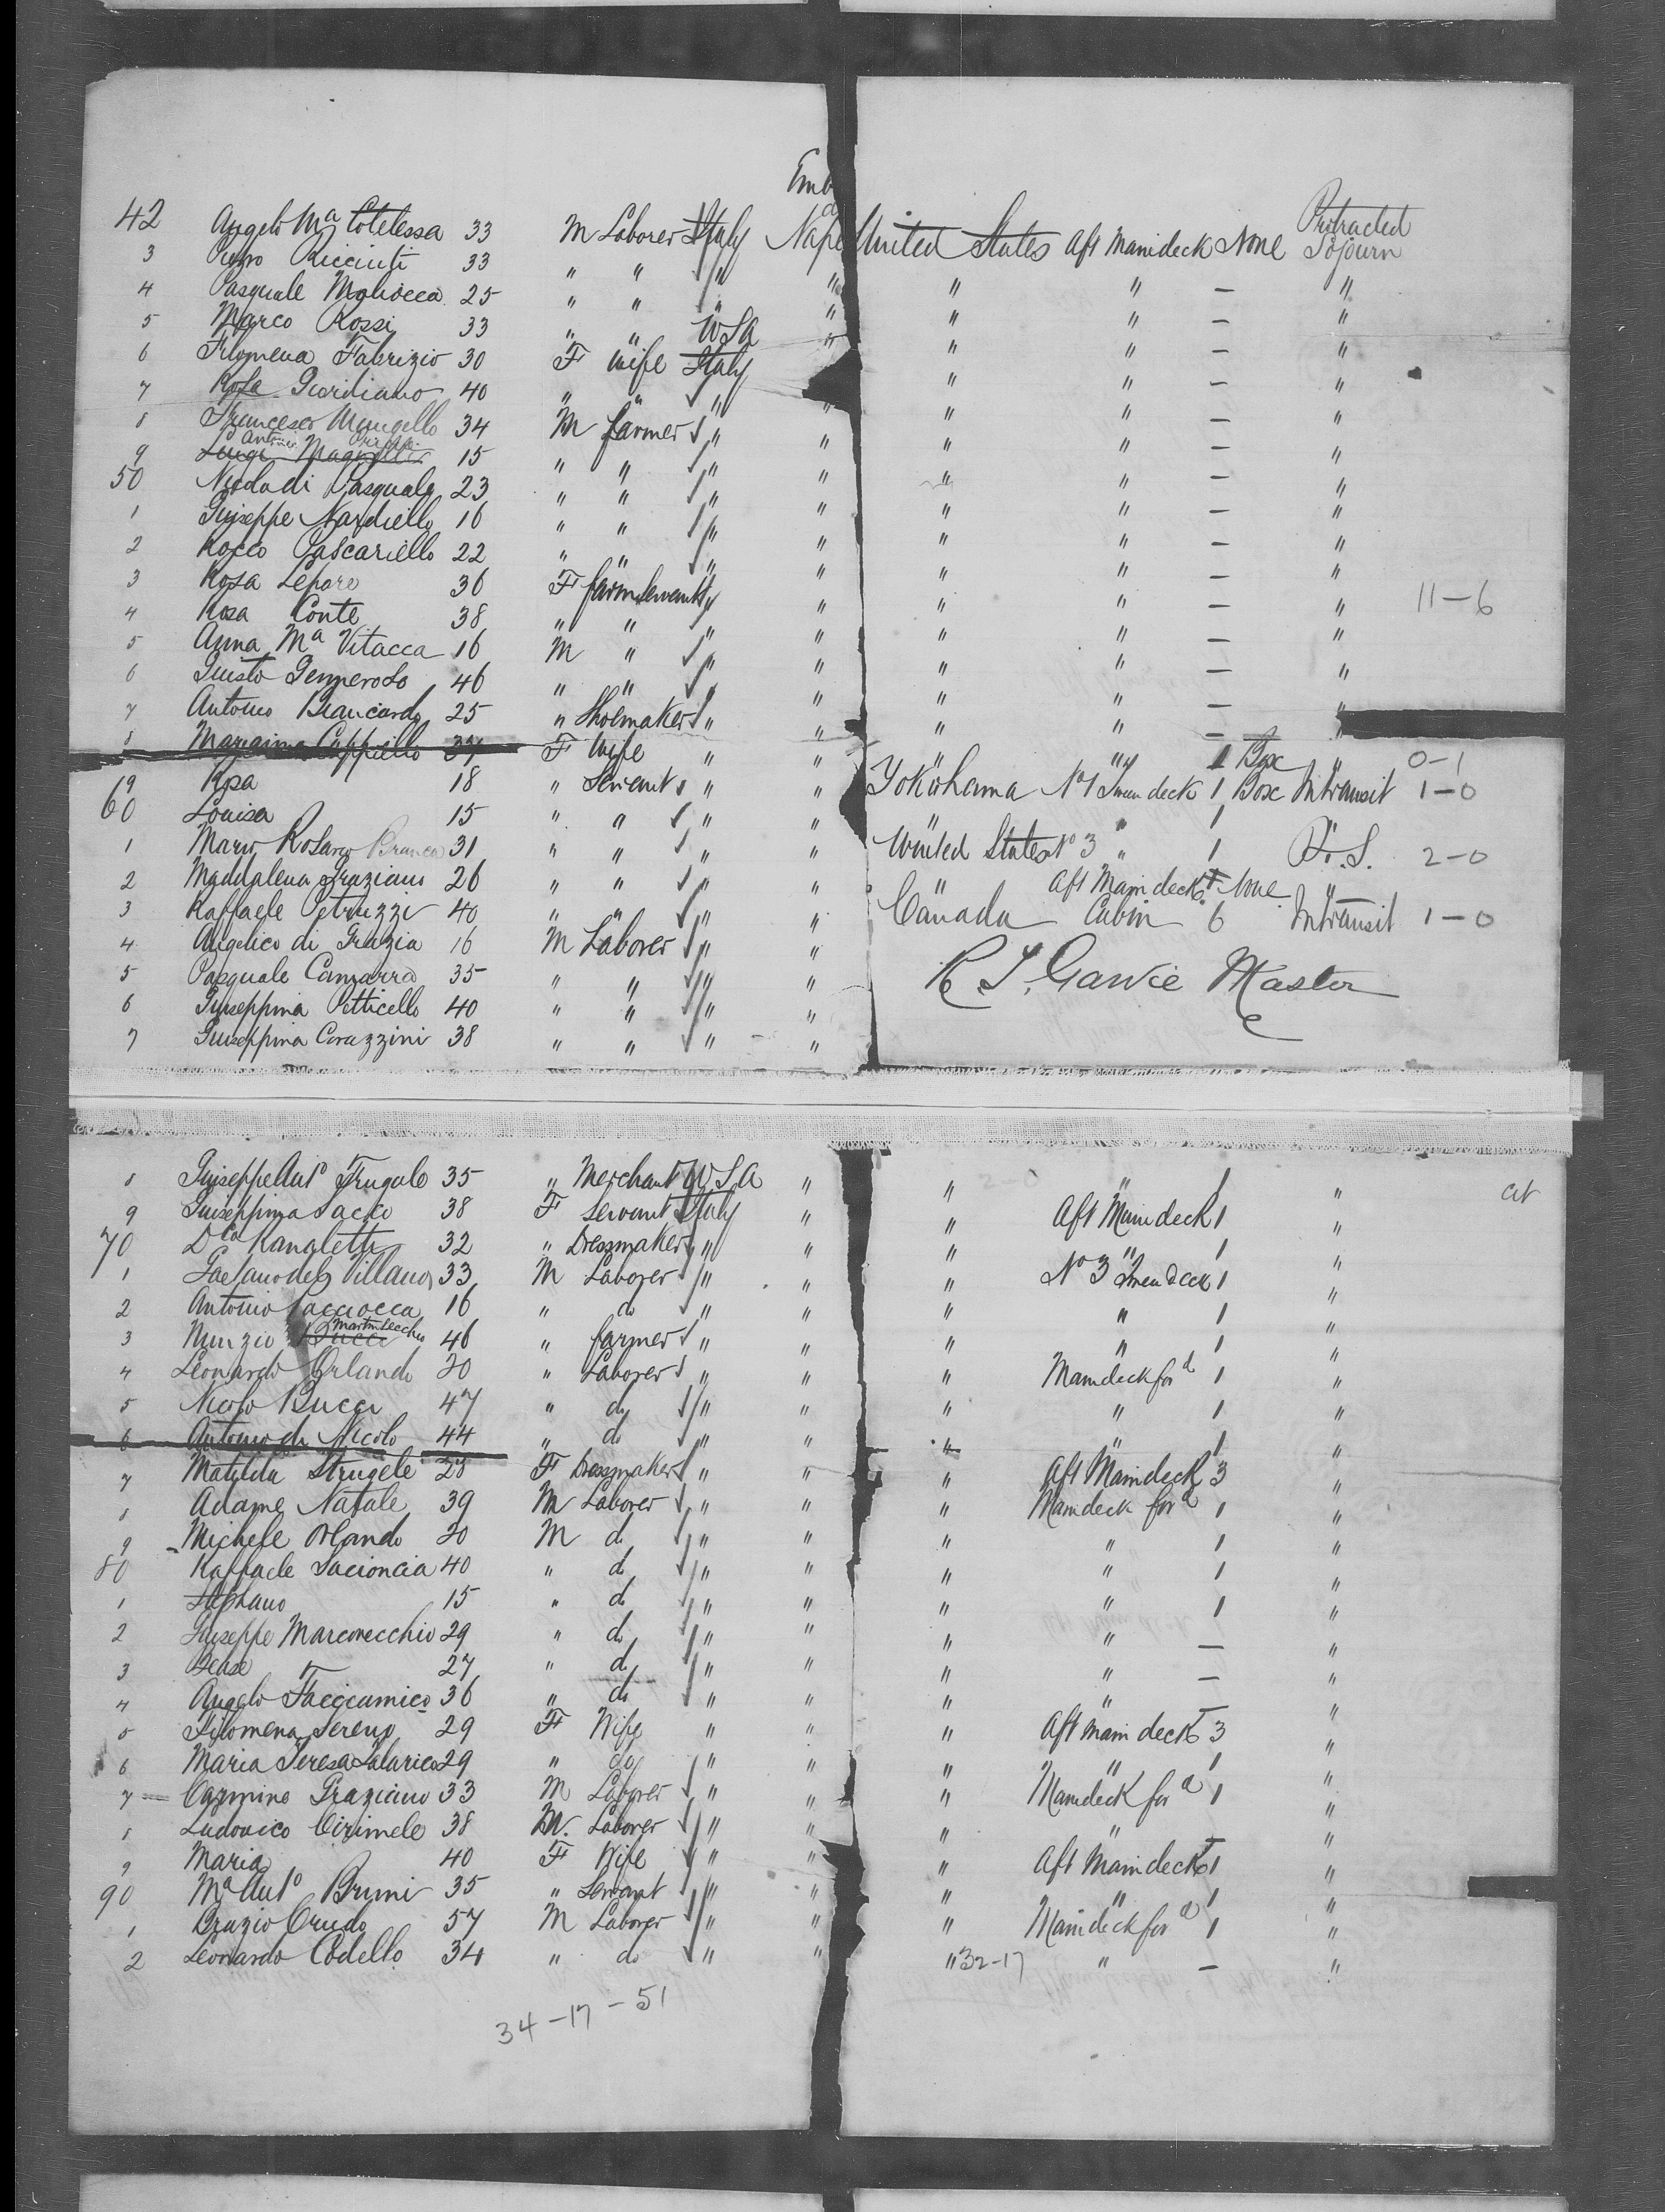 Emb
42 Angelo Ma Cotelessa 33 M Laborer Italy Naple United States Aft Maindeck None Protracted Sojourn
3 Ricciuti 33 " " " " " " — "
4 Pasquale 25 " " " " " " — "
5 Marco Rossi 33 " " USA " " " — "
6 Filomena Fabrizio 30 F Wife Italy " " — "
7 Rosa Giordiano 40 " " " " " " — "
8 Francesco Mangello 34 M farmer " " " " — "
9 Luigi Antonio 15 " " " " " " — "
50 Nicola di Pasquale 23 " " " " " " — "
1 Giuseppe Nardiello 16 " " " " " " — "
2 Rocco Pascariello 22 " " " " " " — "
3 Rosa Lepore 36 F farm servant " " " " — " 11-6
4 Rosa Conte 38 " " " " " " — "
5 Anna Ma Vitacca 16 M " " " " " — "
6 Giusto Generoso 46 " " " " " " — "
7 Antonio Biancardo 25 " Shoemaker " " " " — "
8 Cappiello 37 F Wife " " " " 1 Box " 0-1
9 Rosa 18 " Servant " " Yokohama No 1 deck 1 Box Intransit 1-0
60 Louisa 15 " " " " " 1
1 Maria Rosaria Branca 31 " " " " United States No 3 " 1 P. S. 2-0
2 Maddalena Graziano 26 " " " " " Aft Main deck None "
3 Raffaele Petruzzi 40 " " " " Canada Cabin 6 Intransit 1-0
4 Angelico di Grazia 16 M Laborer " "
5 Pasquale Canzarra 35 " " " " R S. Garvie Master
6 Giuseppina Petticello 40 " " " "
7 Giuseppina Corazzini 38 " " " "
8 Giuseppe Anto Frugale 35 " Merchant USA " " " 1 " 2-0
9 Giuseppina Sacco 38 F Servant Italy " " Aft Main deck 1 "
70 Dca Rangletti 32 " Dressmaker " " " " 1 "
1 Gaetano del Villano 33 M Laborer " " " No 3 deck 1 "
2 Antonio Pacciocca 16 " do " " " " 1 "
3 Nunzio Bucci 46 " farmer " " " " 1 "
4 Leonardo Orlando 20 " Laborer " " " Maindeck ford 1 "
5 Nicolo Bucci 47 " do " " " " 1 "
6 Antonio di Nicolo 44 " do " " " " 1 "
7 Matilda Strugele 28 F Dressmaker " " " Aft Maindeck 3 "
8 Adame Natale 39 M Laborer " " " Maindeck ford 1 "
9 Michele Orlando 20 M do " " " " 1 "
80 Raffaele Sacioncia 40 " do " " " " 1 "
1 Stephano 15 " do " " " " 1 "
2 Giuseppe Marcovecchio 29 " do " " " " — "
3 Bease 27 " do " " " " — "
4 Angelo Faccicamico 36 " do " " " " — "
5 Filomena Sereno 29 F Wife " " " Aft main deck 3 "
6 Maria Teresa Salarico 29 " do " " " " 1 "
7 Carmine Graziano 33 M Laborer " " " Maindeck ford 1 "
8 Ludovico Cirimele 38 M. Laborer " " " " "
9 Maria 40 F Wife " " " Aft Main deck 1 "
90 Ma Anto Bruni 35 " Servant " " " " 1 "
1 Orazio Crudo 57 M Laborer " " " Maindeck ford 1 "
2 Leonardo Codello 34 " do " " " 32-17 " — "
34-17-51